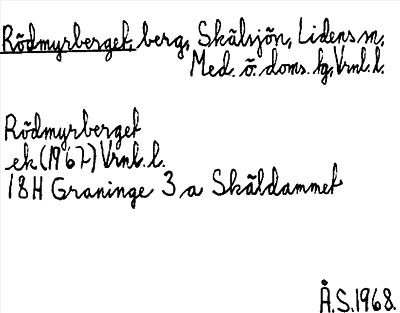 Rödmyrberget, berg, Skälsjön, Lidens sn,
Med. ö. doms. hg, Vrnl. l.
Rödmyrberget
ek (1967) Vrnl. l.
18H Graninge 3 a Skäldammet
Å.S. 1968.